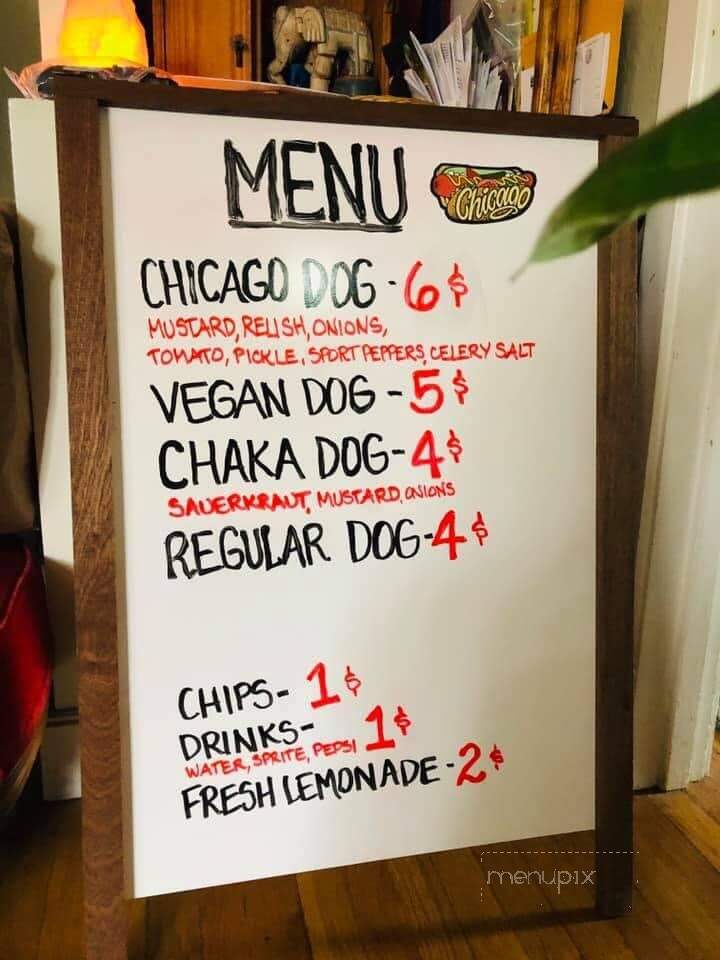 MENU
Chicago
CHICAGO DOG - 6$
MUSTARD, RELISH, ONIONS,
TOMATO, PICKLE, SPORT PEPPERS, CELERY SALT
VEGAN DOG - 5$
CHAKA DOG - 4$
SAUERKRAUT, MUSTARD, ONIONS
REGULAR DOG - 4$
CHIPS - 1$
DRINKS - 1$
WATER, SPRITE, PEPSI
FRESH LEMONADE - 2$
menupix